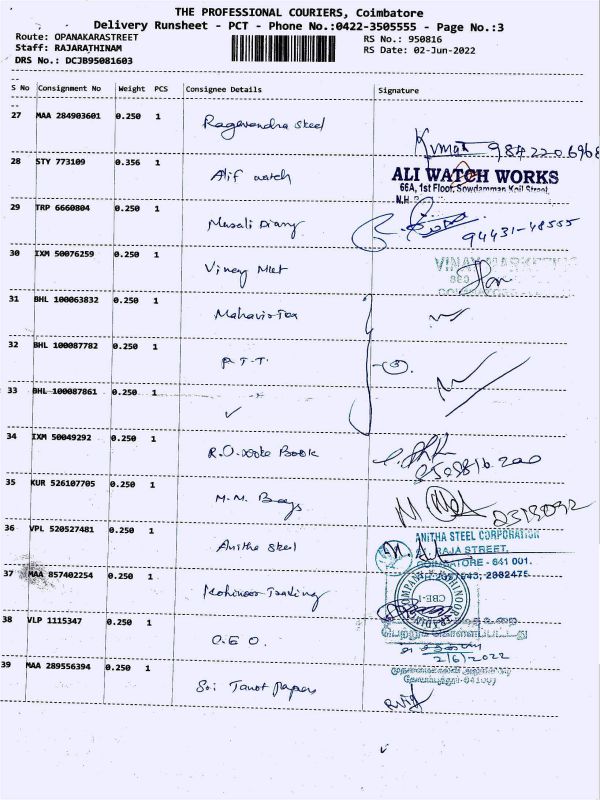 THE PROFESSIONAL COURIERS, Coimbatore
Delivery Runsheet - PCT - Phone No.:0422-3505555 - Page No.:3
Route: OPANAKARASTREET RS No.: 950816
Staff: RAJARATHINAM RS Date: 02-Jun-2022
DRS No.: DCJB95081603
S No Consignment No Weight PCS Consignee Details Signature
27 MAA 284903601 0.250 1 Ragavendra steel
Kumar
28 STY 773109 0.356 1 Alif watch
ALI WATCH WORKS
66A, 1st Floor, Sowdamman Koil Street,
29 TRP 6660804 0.250 1 Musali Diary
94431-48555
30 IXM 50076259 0.250 1 Vinay Mkt
VINAY MARKETING
31 BHL 100063832 0.250 1 Mahavir Tex
32 BHL 100087782 0.250 1 P.T.T.
33 BHL 100087861 0.250 1 ✓
34 IXM 50049292 0.250 1 R.O. Book
35 KUR 526107705 0.250 1 M.M. Bags
36 VPL 520527481 0.250 1 Anitha steel
ANITHA STEEL CORPORATION
RAJA STREET,
COIMBATORE - 641 001.
37 MAA 857402254 0.250 1 Kohinoor Trading
CBE-1
38 VLP 1115347 0.250 1 O.E.O.
2/6/2022
39 MAA 289556394 0.250 1 Sri Tanot papers